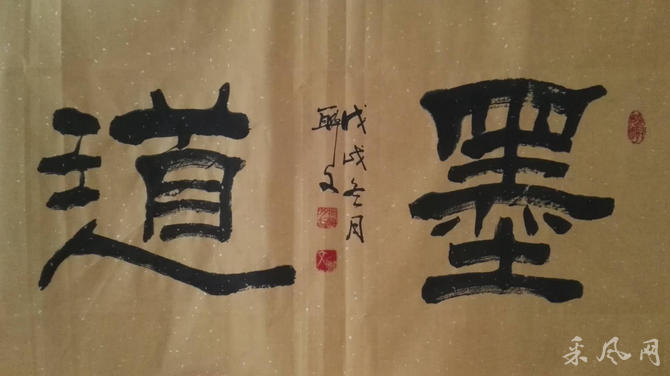 墨道
戊戌冬月
联文
采风网